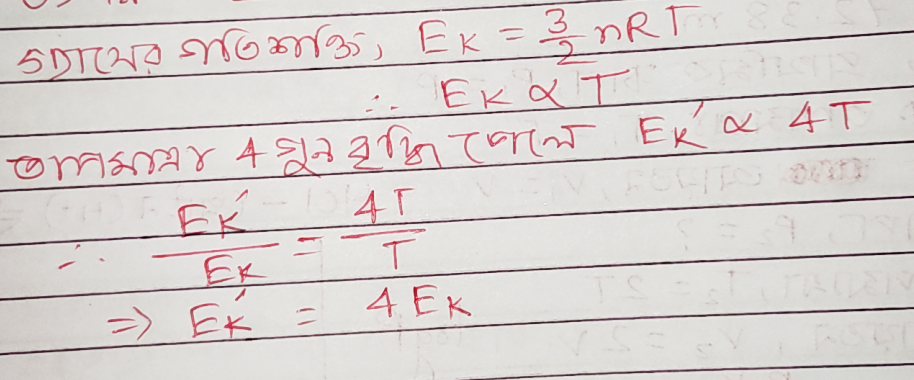 গ্যাসের গতিশক্তি, E_K = 3/2 nRT
∴ E_K ∝ T
তাপমাত্রা 4 গুন বৃদ্ধি পেলে E_K′ ∝ 4T
∴ E_K′/E_K = 4T/T
⇒ E_K′ = 4 E_K